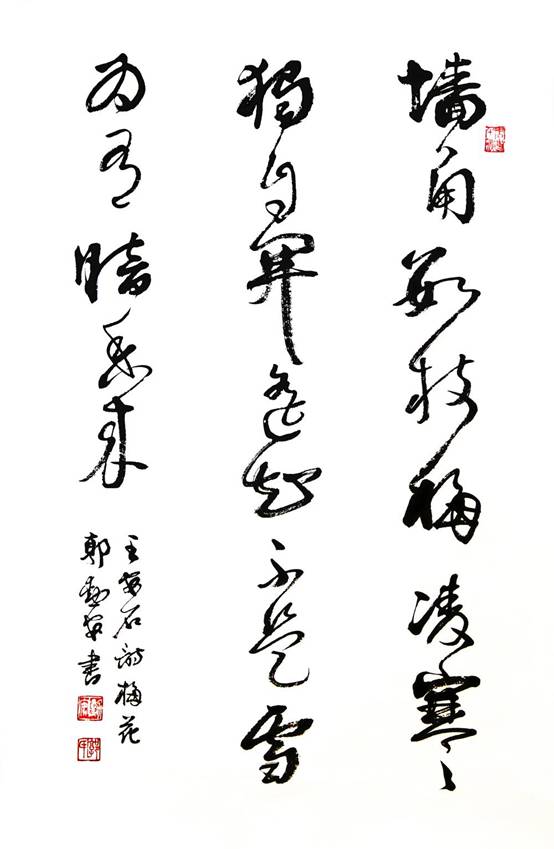 墙角数枝梅凌寒
独自開遥知不是雪
为有暗香来
王安石诗梅花
郑书